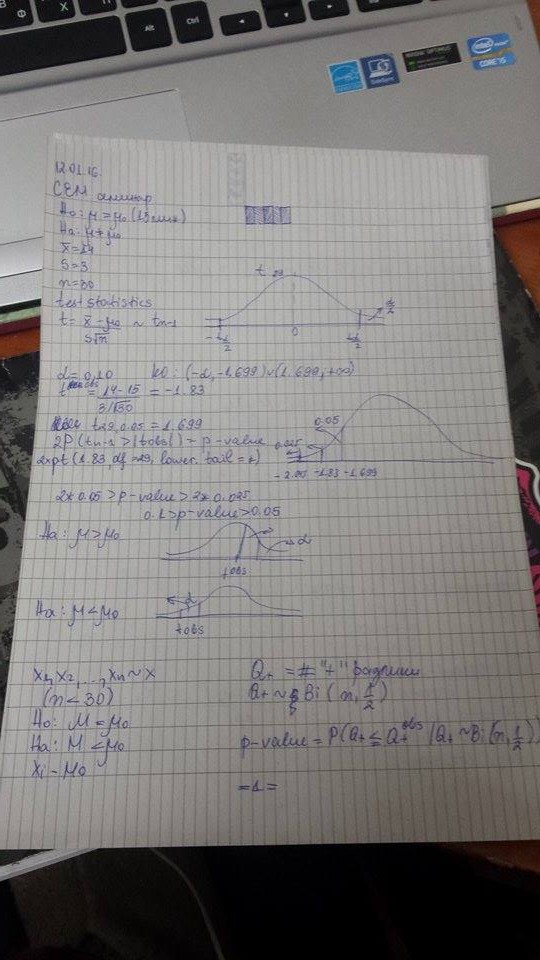 Alt
Ctrl
intel
CORE i5
12.01.16.
СЕМинар
H₀: μ = μ₀ (15 мин)
Hₐ: μ ≠ μ₀
x̄ = 14
S = 3
n = 30
test statistics
t = x̄ - μ₀ / S√n ~ tn-1
t 29
0
α/2
α = 0,10 KO: (-∞, -1.699) ∪ (1.699, +∞)
t = 14 - 15 / 3/√30 = -1.83
t29,0.05 = 1.699
2P(tn-1 > |tobs|) = p-value
2*pt(1.83, df = 29, lower.tail = )
0.05
0.025
-1.83 -1.699
2*0.05 > p-value > 2*0.025
0.1 > p-value > 0.05
Ha: μ > μ₀
α
tobs
Ha: μ < μ₀
α
tobs
x₁, x₂, ..., xn ~ X
(n < 30)
H₀: M = μ₀
Ha: M < μ₀
xi - μ₀
Q₊ = # "+" разлики
Q₊ ~ Bi(n, 1/2)
p-value = P(Q₊ ≤ Q₊ᵒᵇˢ | Q₊ ~ Bi(n, 1/2))
= 1 =